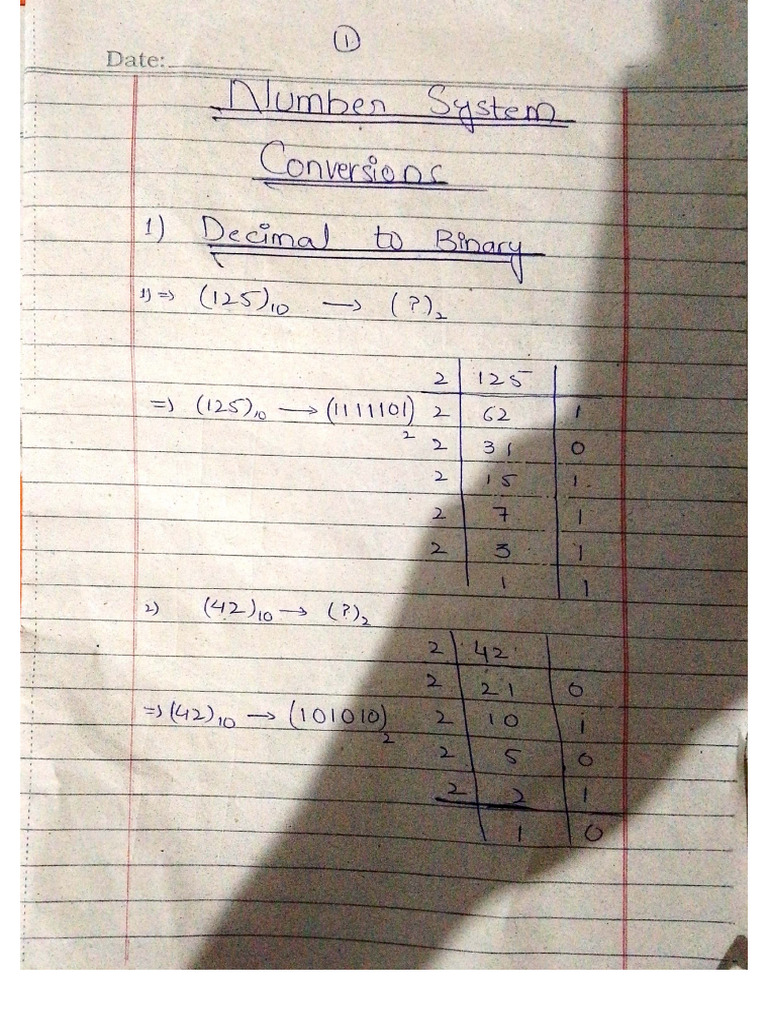 1
Date:
Number System
Conversions
1) Decimal to Binary
1) => (125)10 → (?)2
2 | 125 |
=> (125)10 → (1111101)2 2 | 62 | 1
2 | 31 | 0
2 | 15 | 1
2 | 7 | 1
2 | 3 | 1
1 | 1
2) (42)10 → (?)2
2 | 42 |
2 | 21 | 0
=> (42)10 → (101010)2 2 | 10 | 1
2 | 5 | 0
2 | 2 | 1
1 | 0